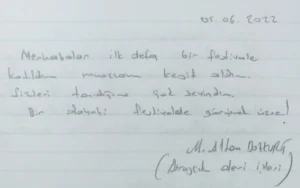 05.06.2022
Merhabalar ilk defa bir festivale
katıldım muazzam keyif aldım.
Sizleri tanıdığıma çok sevindim.
Bir dahaki festivalde görüşmek üzere!
M. Altan
deri işleri)